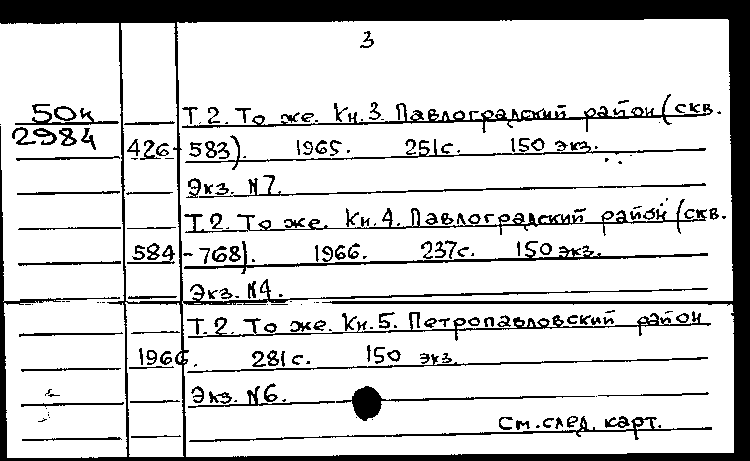 3
50к Т.2. То же. Кн.3. Павлоградский район (скв.
2984 426-583). 1965. 251с. 150 экз.
Экз. №7.
Т.2. То же. Кн.4. Павлоградский район (скв.
584-768). 1966. 237с. 150 экз.
Экз. №4.
Т.2. То же. Кн.5. Петропавловский район
1966. 281с. 150 экз.
Экз. №6.
См. след. карт.